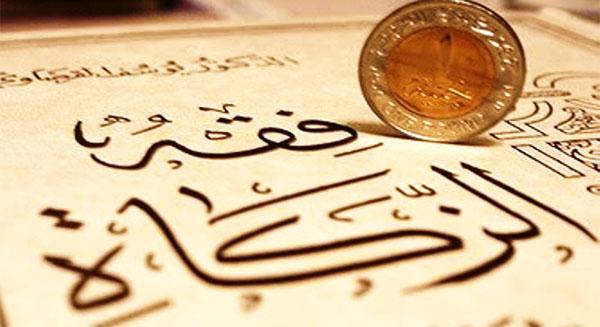 الدكتور يوسف القرضاوي
فقهُ
الزّكاة
١
جنيه